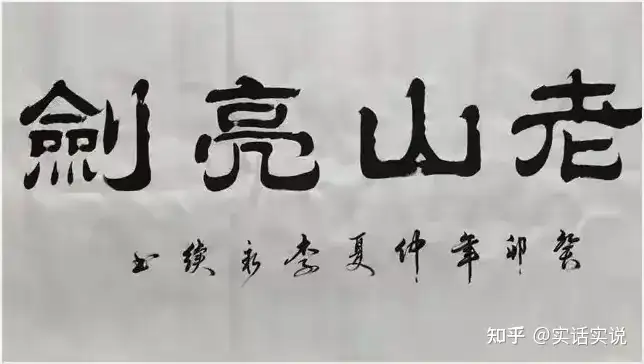 老山亮劍
癸卯年仲夏李永续书
知乎 @实话实说